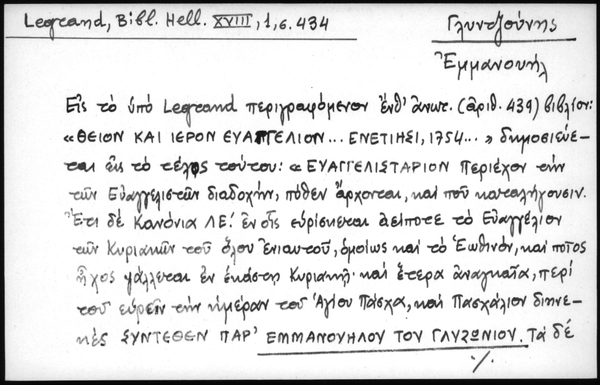 Legrand, Bibl. Hell. XVIII, 1, σ. 434
Γλυντζούνης
Ἐμμανουήλ
Εἰς τὸ ὑπὸ Legrand περιγραφόμενον ἐνθ' ἀνωτ. (ἀριθ. 439) βιβλίον:
« ΘΕΙΟΝ ΚΑΙ ΙΕΡΟΝ ΕΥΑΓΓΕΛΙΟΝ... ΕΝΕΤΙΗΣΙ, 1754... » δημοσιεύε-
ται εἰς τὸ τέλος τούτου: « ΕΥΑΓΓΕΛΙΣΤΑΡΙΟΝ Περιέχον τὴν
τῶν Εὐαγγελιστῶν διαδοχήν, πόθεν ἄρχονται, καὶ ποῦ καταλήγουσιν.
Ἔτι δὲ Κανόνια ΛΕ! ἐν οἷς εὑρίσκεται ἀείποτε τὸ Εὐαγγέλιον
τῶν Κυριακῶν τοῦ ὅλου ἐνιαυτοῦ, ὁμοίως καὶ τὸ Ἑωθινόν, καὶ ποῖος
ἦχος ψάλλεται ἐν ἑκάστῃ Κυριακῇ· καὶ ἕτερα ἀναγκαῖα, περὶ
τοῦ εὑρεῖν τὴν ἡμέραν τοῦ Ἁγίου Πάσχα, καὶ Πασχάλιον διηνε-
κὲς ΣΥΝΤΕΘΕΝ ΠΑΡ' ΕΜΜΑΝΟΥΗΛΟΥ ΤΟΥ ΓΛΥΖΩΝΙΟΥ. Τὰ δὲ
·/.